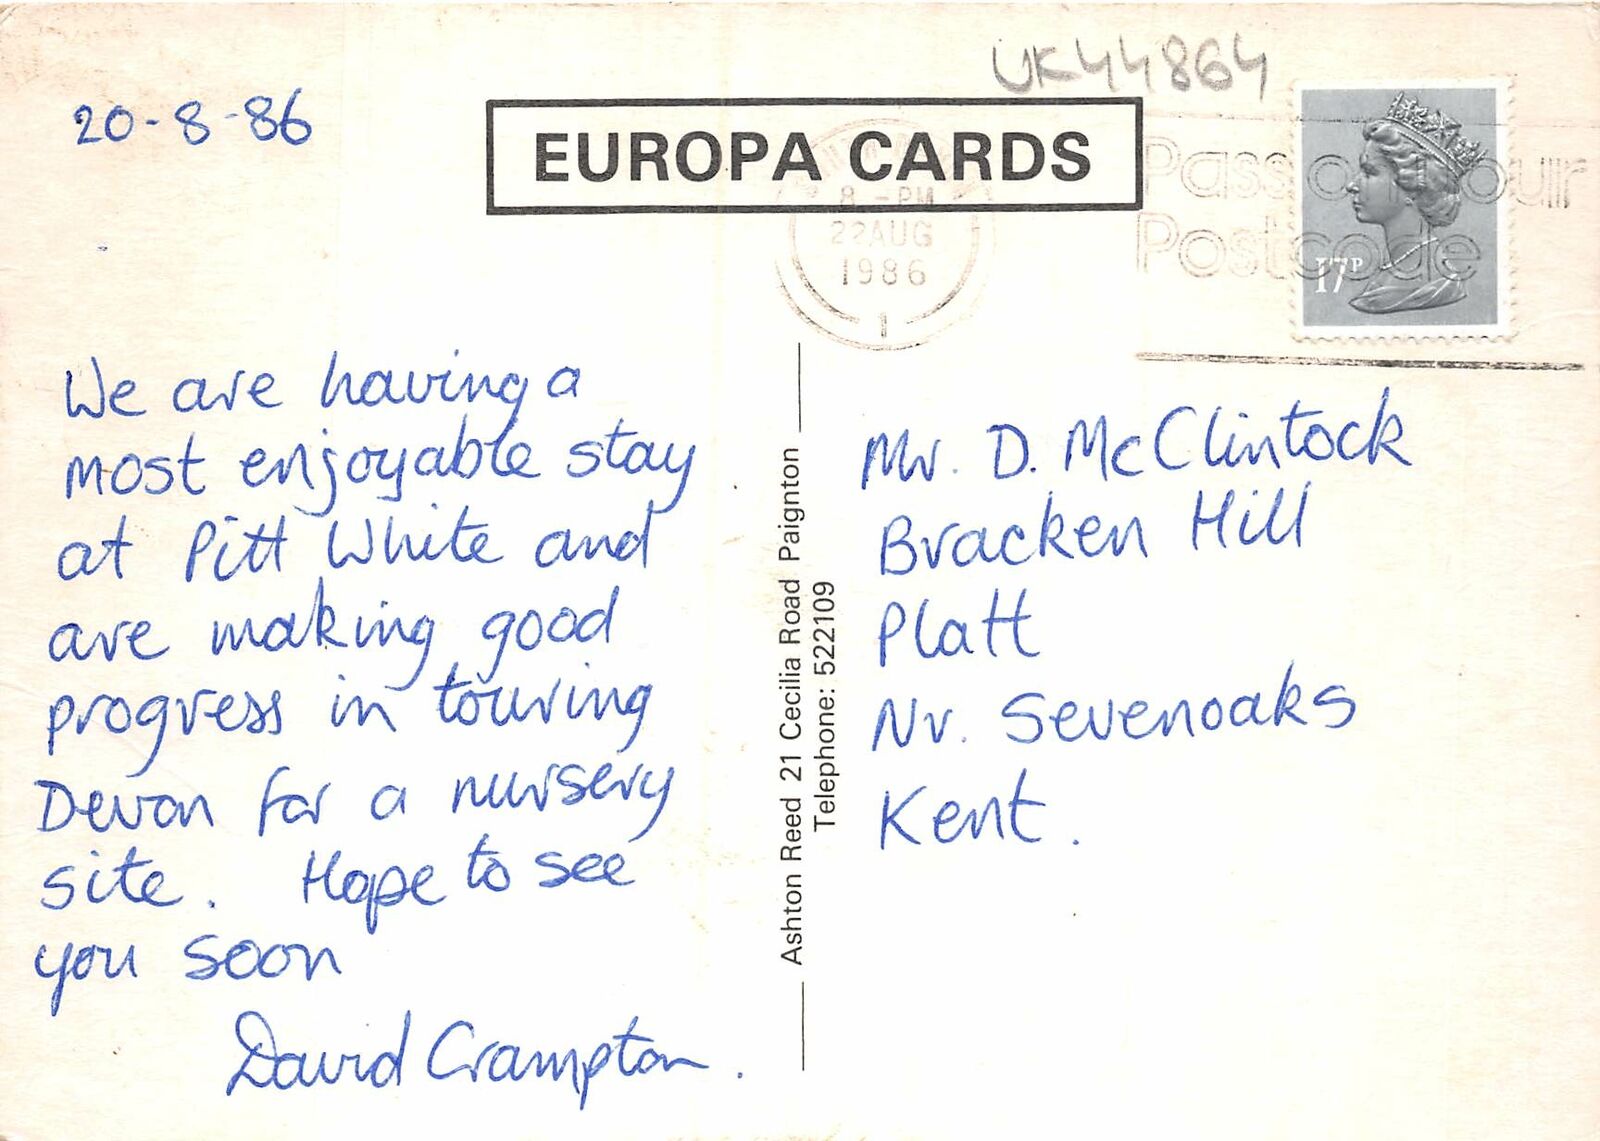 UK44864
20-8-86
EUROPA CARDS
8 - PM
22 AUG
1986
1
Pass on your
Postcode
17P
We are having a
most enjoyable stay
at Pitt White and
are making good
progress in touring
Devon for a nursery
site. Hope to see
you soon
David Crampton.
Ashton Reed 21 Cecilia Road Paignton
Telephone: 522109
Mr. D. McClintock
Bracken Hill
Platt
Nr. Sevenoaks
Kent.